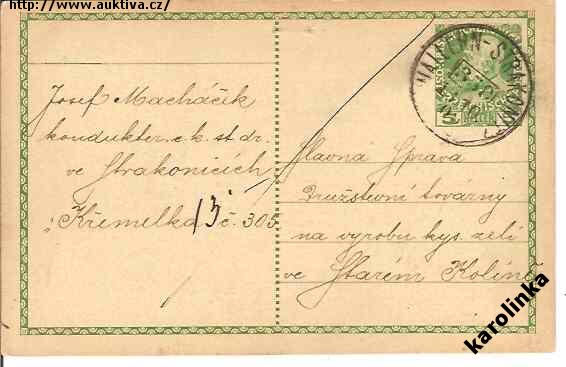 http://www.auktiva.cz/
Josef Macháček
kondukter c.k. st. dr.
ve Strakonicích
Křemelka č. 305
15
Slavná Správa
Družstevní továrny
na výrobu kys. zelí
ve Starém Kolíně
karolinka